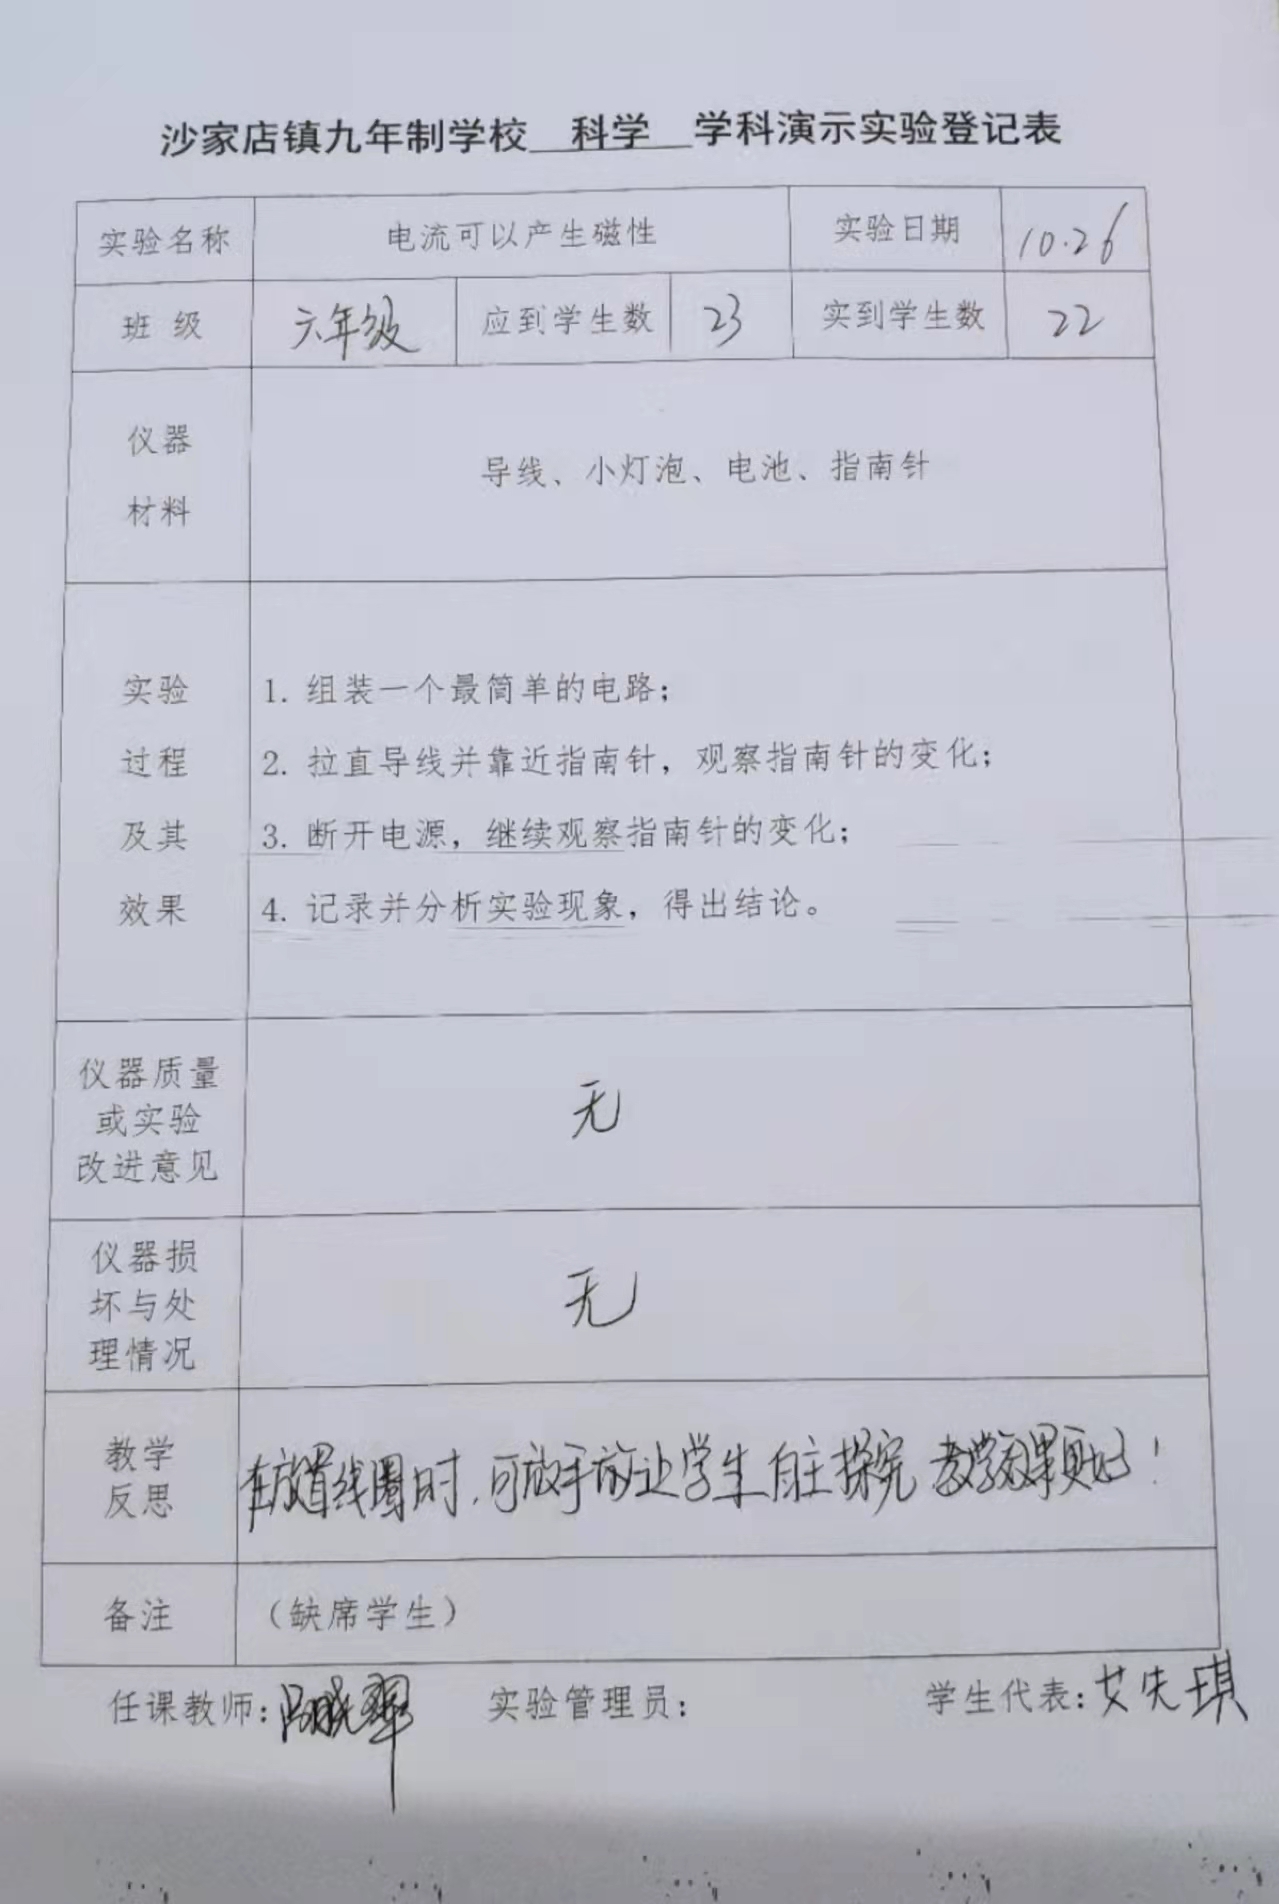 沙家店镇九年制学校 科学 学科演示实验登记表
实验名称 电流可以产生磁性 实验日期 10.26
班 级 六年级 应到学生数 23 实到学生数 22
仪器
材料
导线、小灯泡、电池、指南针
实验
过程
及其
效果
1. 组装一个最简单的电路；
2. 拉直导线并靠近指南针，观察指南针的变化；
3. 断开电源，继续观察指南针的变化；
4. 记录并分析实验现象，得出结论。
仪器质量
或实验
改进意见
无
仪器损
坏与处
理情况
无
教学
反思
在放置线圈时，可放手让学生自主探究 教学效果更好！
备注 （缺席学生）
任课教师： 实验管理员： 学生代表：艾 琪